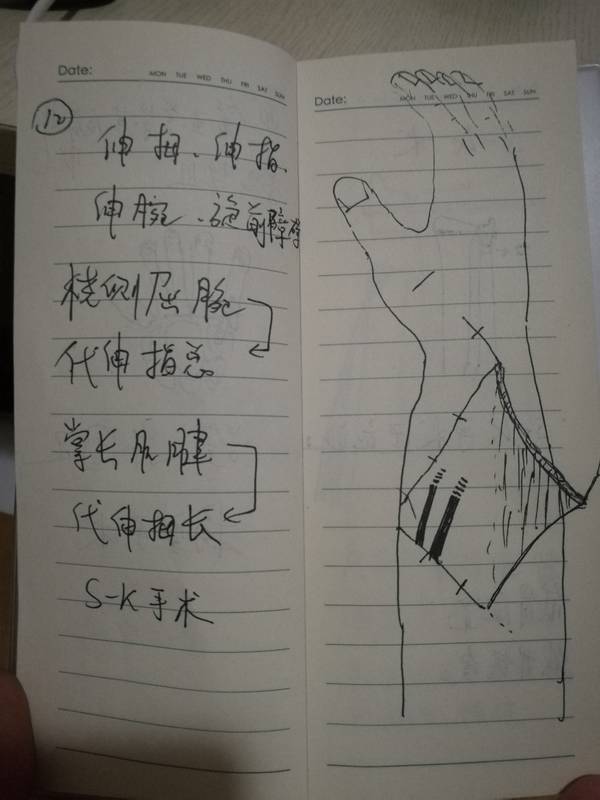 Date:
MON TUE WED THU FRI SAT SUN
⑫
伸拇、伸指、
伸腕、旋前障碍
桡侧屈腕
代伸指总
掌长肌腱
代伸拇长
S-K手术
Date:
MON TUE WED THU FRI SAT SUN